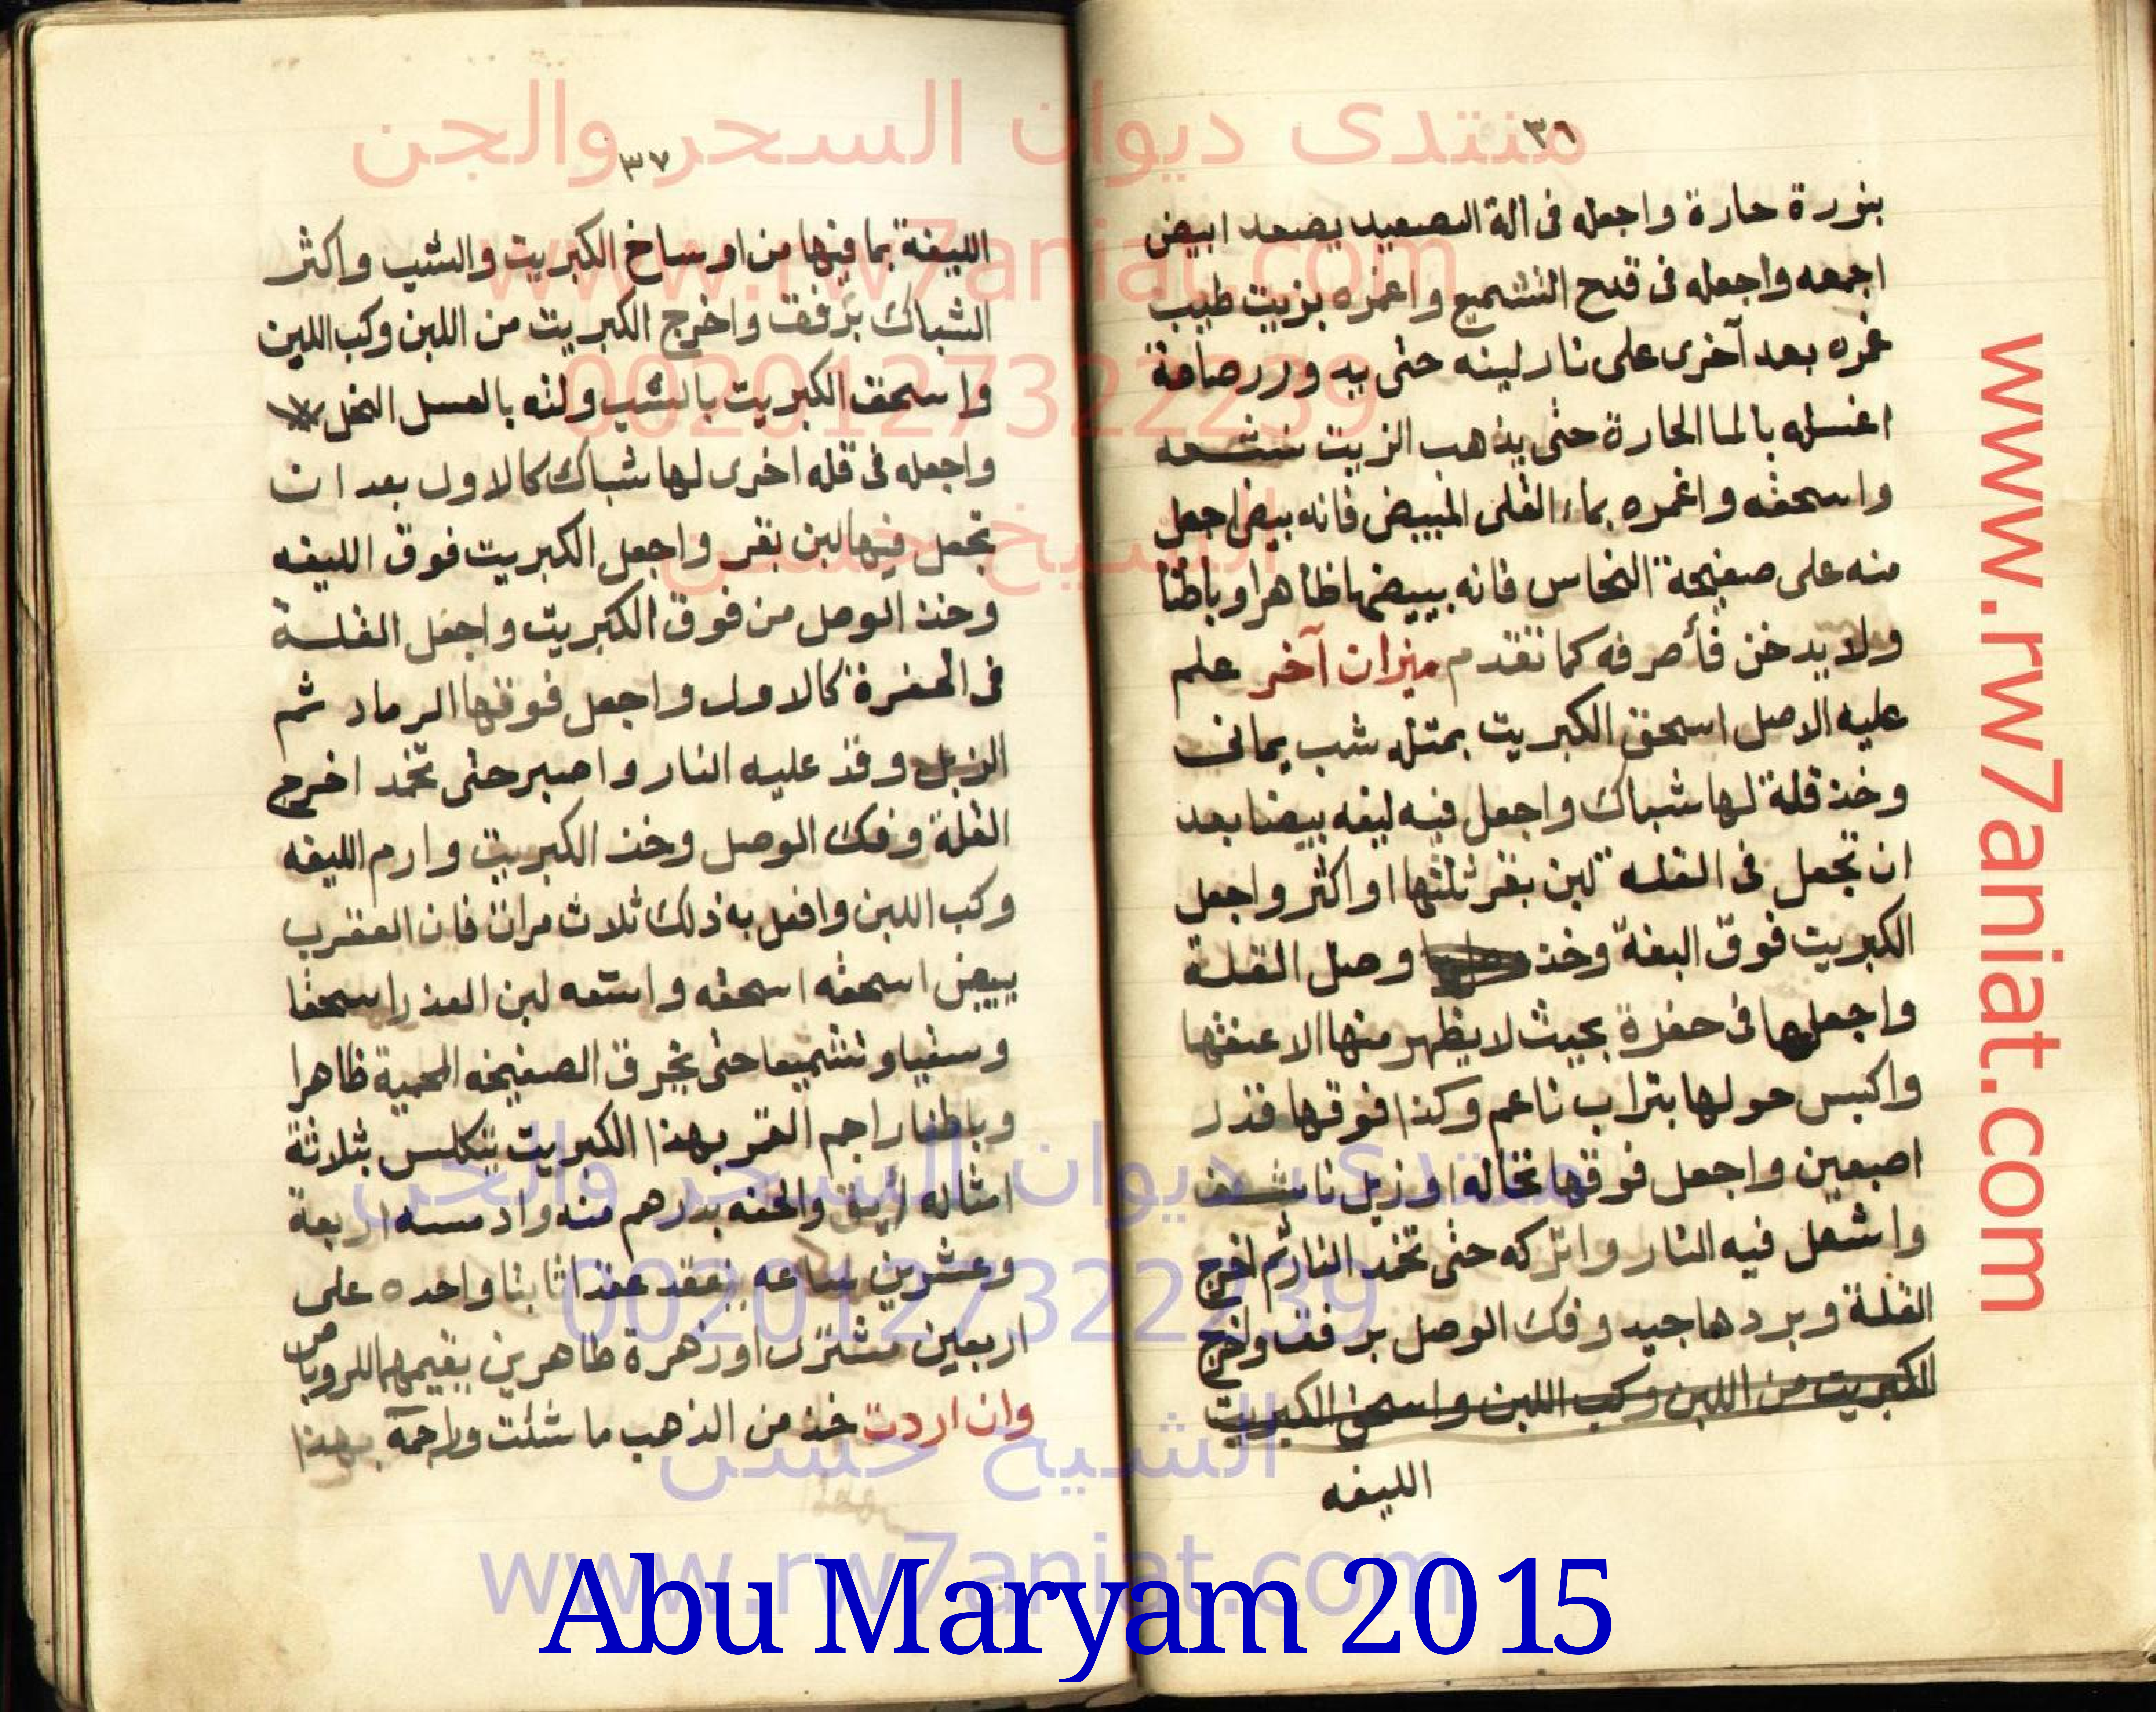 ٣٦
بنورة حارة واجعله فى الة التصعيد يصعد ابيض
اجمعه واجعله فى قدح التشميع واغمره بزيت طيب
غمره بعد آخرى على نار لينه حتى يد ورر صاصة
اغسله بالما الحارة حتى يذهب الزيت نشـه
واسحقه واغمره بماء القلى المبيض فانه بيض اجعل
منه على صفيحة النحاس فانه يبيضها ظاهرا وباطنا
ولا يدخن فأصرفه كما تقدم ميزان آخر علم
عليه الاصل اسحق الكبريت بمثله شب يمانى
وخذ قلة لها شباك واجعل فيه ليفه بيضا بعد
ان تجعل فى القله لبن بقر ثلثها او اكثر واجعل
الكبريت فوق اليفة وخذ وصل القلة
واجعلها فى حفرة بحيث لا يظهر منها الا عنقها
واكبس حولها بتراب ناعم وكذا فوقها قدر
اصبعين واجعل فوقها نخاله او زبل ناشف
واشعل فيه النار واتركه حتى تخمد النار ثم اخرج
القلة وبردها جيد وفك الوصل برفق واخرج
الكبريت من اللبن وكب اللبن واسحق الكبريت
الليفه
٣٧
الليفة بما فيها من اوساخ الكبريت والشب واكثر
الشباك برفق واخرج الكبريت من اللبن وكب اللبن
واسحق الكبريت بالشب ولته بالعسل النحل
واجعله فى قله اخرى لها شباك كالاول بعد ان
تجعل فيها لبن بقر واجعل الكبريت فوق الليفه
وخذ الوصل من فوق الكبريت واجعل القلـة
فى الحفرة كالاول واجعل فوقها الرماد ثم
الزبل وقد عليه النار واصبر حتى تخمد اخرج
القلة وفك الوصل وخذ الكبريت وارم الليفه
وكب اللبن وافعل به ذلك ثلاث مرات فان العقرب
يبيض اسحقه اسحقه واسقه لبن العذرا سحقا
وسقيا وتشميعا حتى يخرق الصفيحه المحمية ظاهرا
وباطنا راجم القمر بهذا الكبريت يتكلس بثلاثة
امثاله زيبق والحقه بدرهم منه وادمسه اربعة
وعشرين ساعه ينعقد عقدا ثابتا واحده على
اربعين مشترى او زهرة طاهرين يقيمهما للروباص
وان اردت خذ من الذهب ما شئت وراجمه بهذا
منتدى ديوان السحر والجن
www.rw7aniat.com
00201273222239
الشيخ حسن
منتدى ديوان السحر والجن
00201273222239
الشيخ حسن
www.rw7aniat.com
www.rw7aniat.com
Abu Maryam 2015